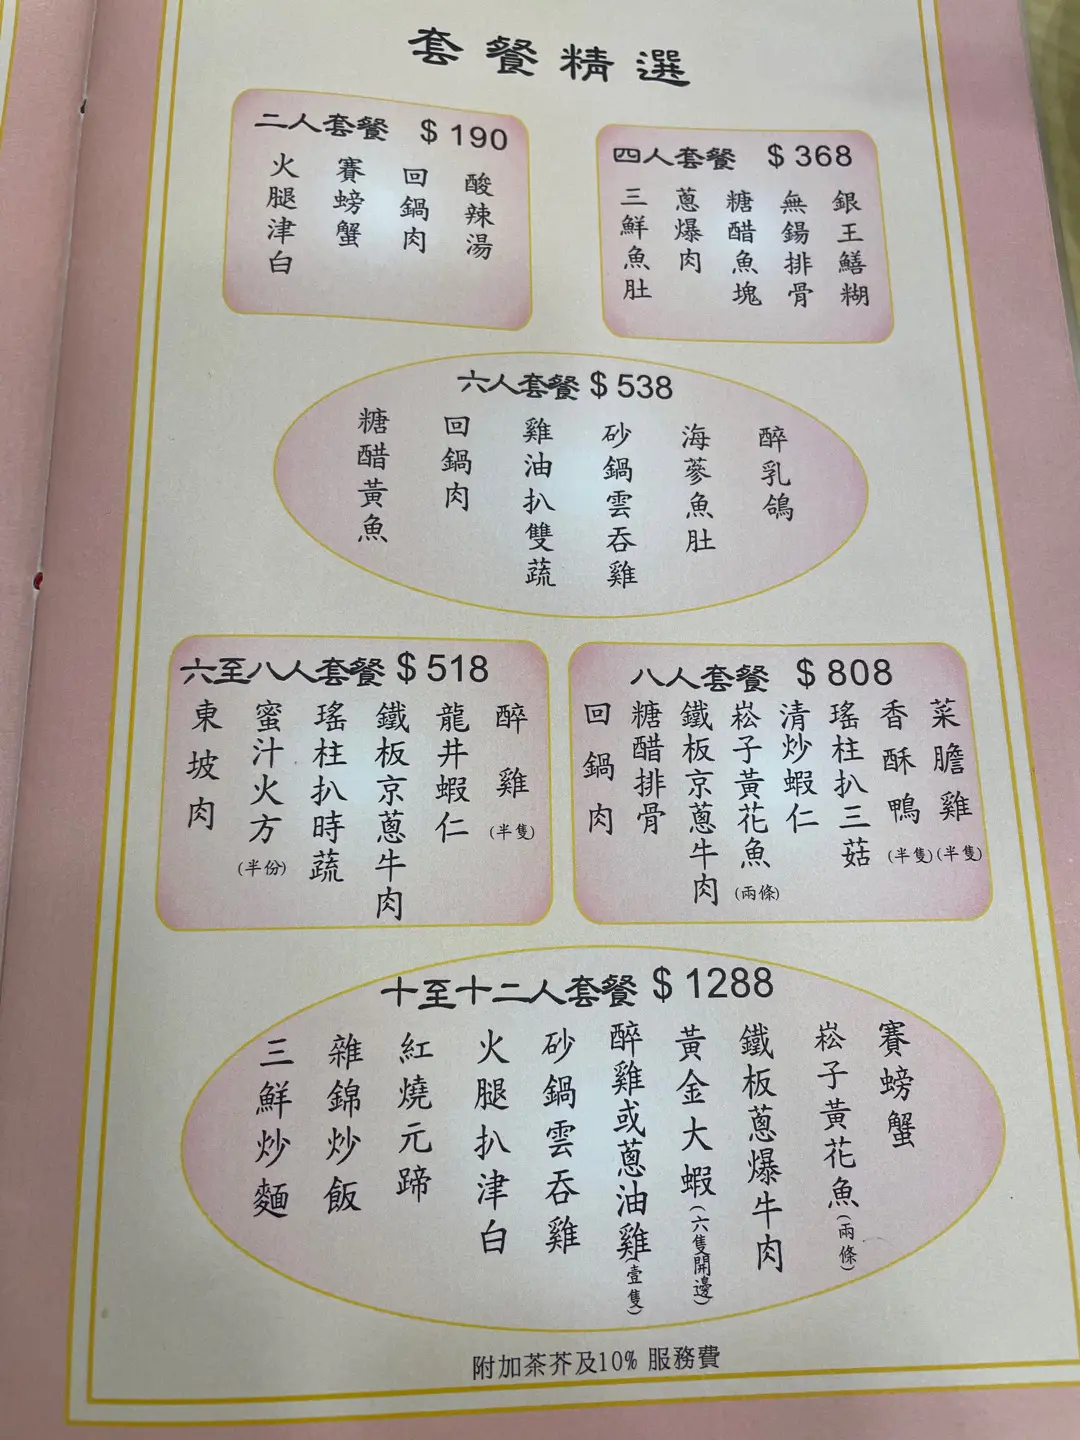 套餐精選
二人套餐 $190
酸辣湯
回鍋肉
賽螃蟹
火腿津白
四人套餐 $368
銀王鱔糊
無錫排骨
糖醋魚塊
蔥爆肉
三鮮魚肚
六人套餐 $538
醉乳鴿
海蔘魚肚
砂鍋雲吞雞
雞油扒雙蔬
回鍋肉
糖醋黃魚
六至八人套餐 $518
醉雞(半隻)
龍井蝦仁
鐵板京蔥牛肉
瑤柱扒時蔬
蜜汁火方(半份)
東坡肉
八人套餐 $808
菜膽雞(半隻)
香酥鴨(半隻)
瑤柱扒三菇
清炒蝦仁
崧子黃花魚(兩條)
鐵板京蔥牛肉
糖醋排骨
回鍋肉
十至十二人套餐 $1288
賽螃蟹
崧子黃花魚(兩條)
鐵板蔥爆牛肉
黃金大蝦(六隻開邊)
醉雞或蔥油雞(壹隻)
砂鍋雲吞雞
火腿扒津白
紅燒元蹄
雜錦炒飯
三鮮炒麵
附加茶芥及10% 服務費